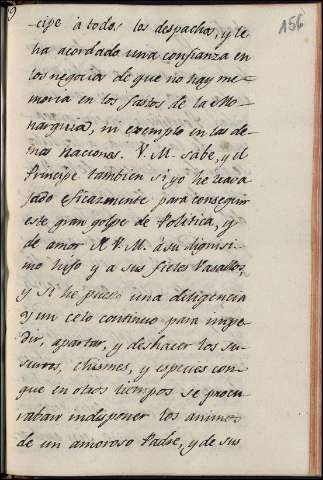 156
-cipe à todos los despachos, y le
ha acordado una confianza en
los negocios de que no hay me-
moria en los fastos de la Mo-
narquia, ni exemplo en las de-
mas naciones. V. M. sabe, y el
Principe tambien si yo he trava
jado eficazmente para conseguir
este gran golpe de Politica, y
de amor A V. M. à su dignisi-
mo hijo y a sus fieles Vasallos,
y si he puesto una diligencia
y un celo continuo para impe-
dir, apartar, y deshacer los su-
surros, chismes, y especies con
que en otros tiempos se procu
raban indisponer los animos
de un amoroso Padre, y de sus